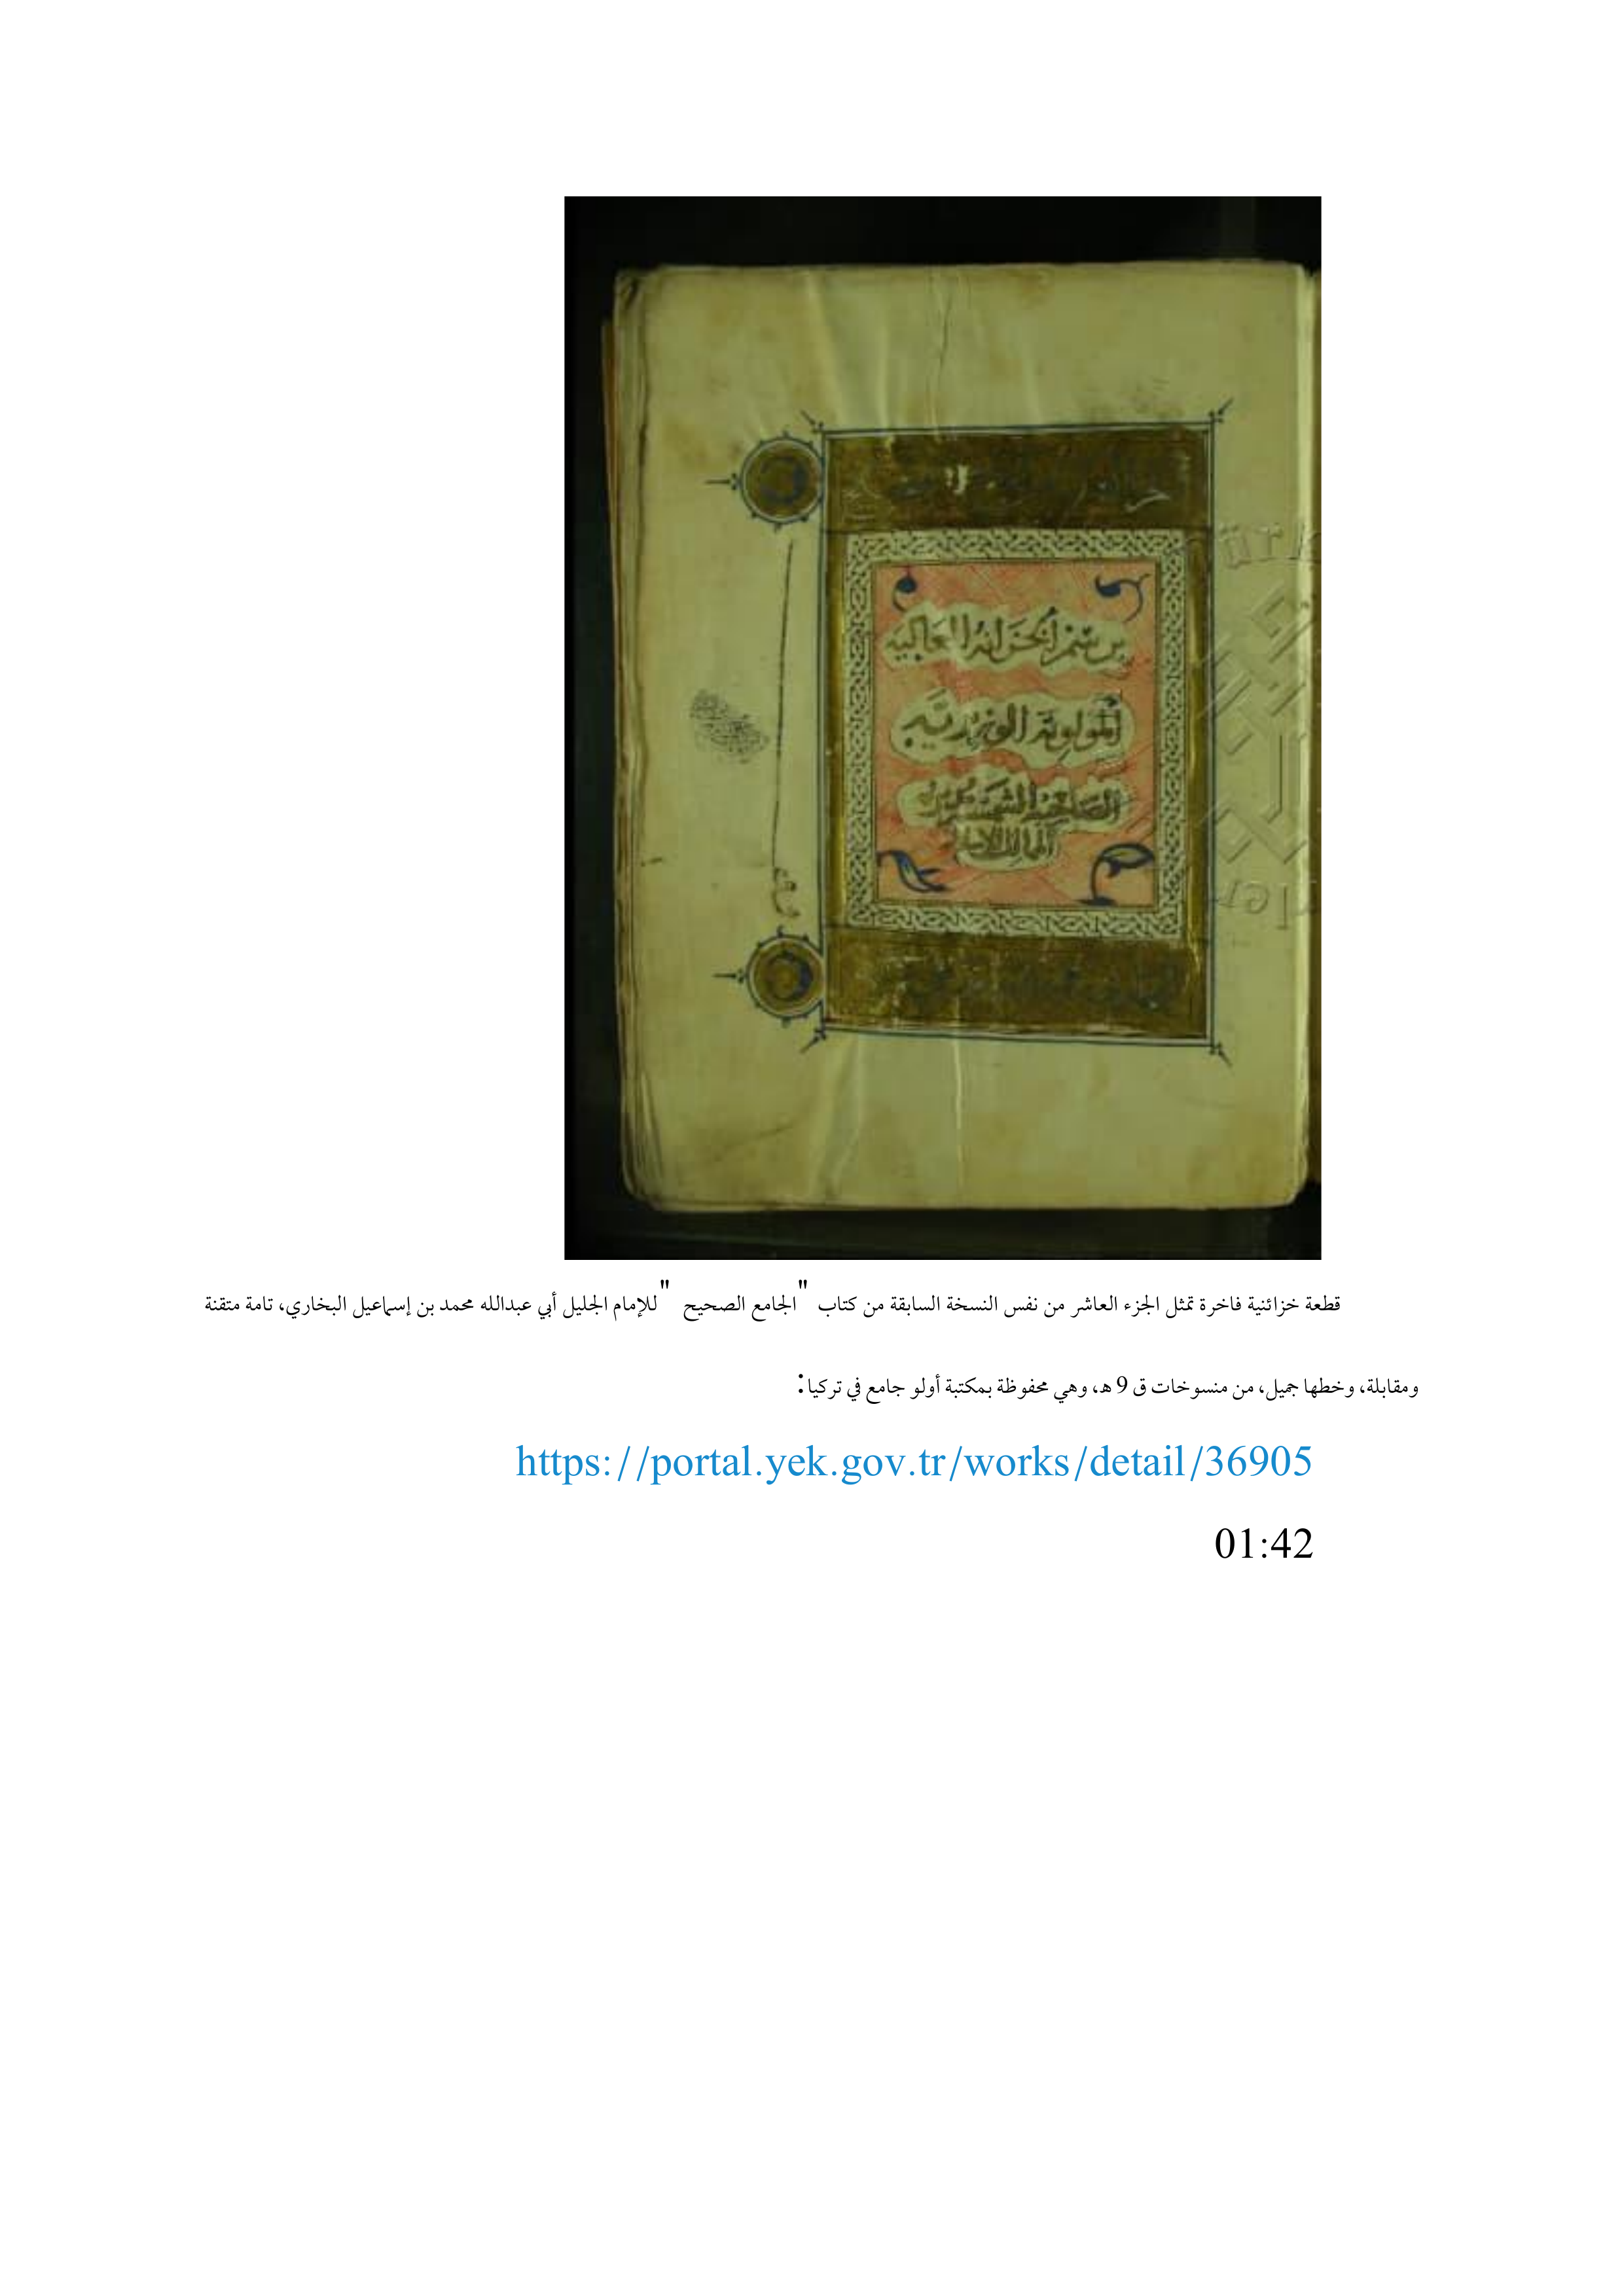 برسم الخزانة العالية
المولوية
المالك
قطعة خزائنية فاخرة تمثل الجزء العاشر من نفس النسخة السابقة من كتاب "الجامع الصحيح "للإمام الجليل أبي عبدالله محمد بن إسماعيل البخاري، تامة متقنة
ومقابلة، وخطها جميل، من منسوخات ق 9 هـ، وهي محفوظة بمكتبة أولو جامع في تركيا:
https://portal.yek.gov.tr/works/detail/36905
01:42